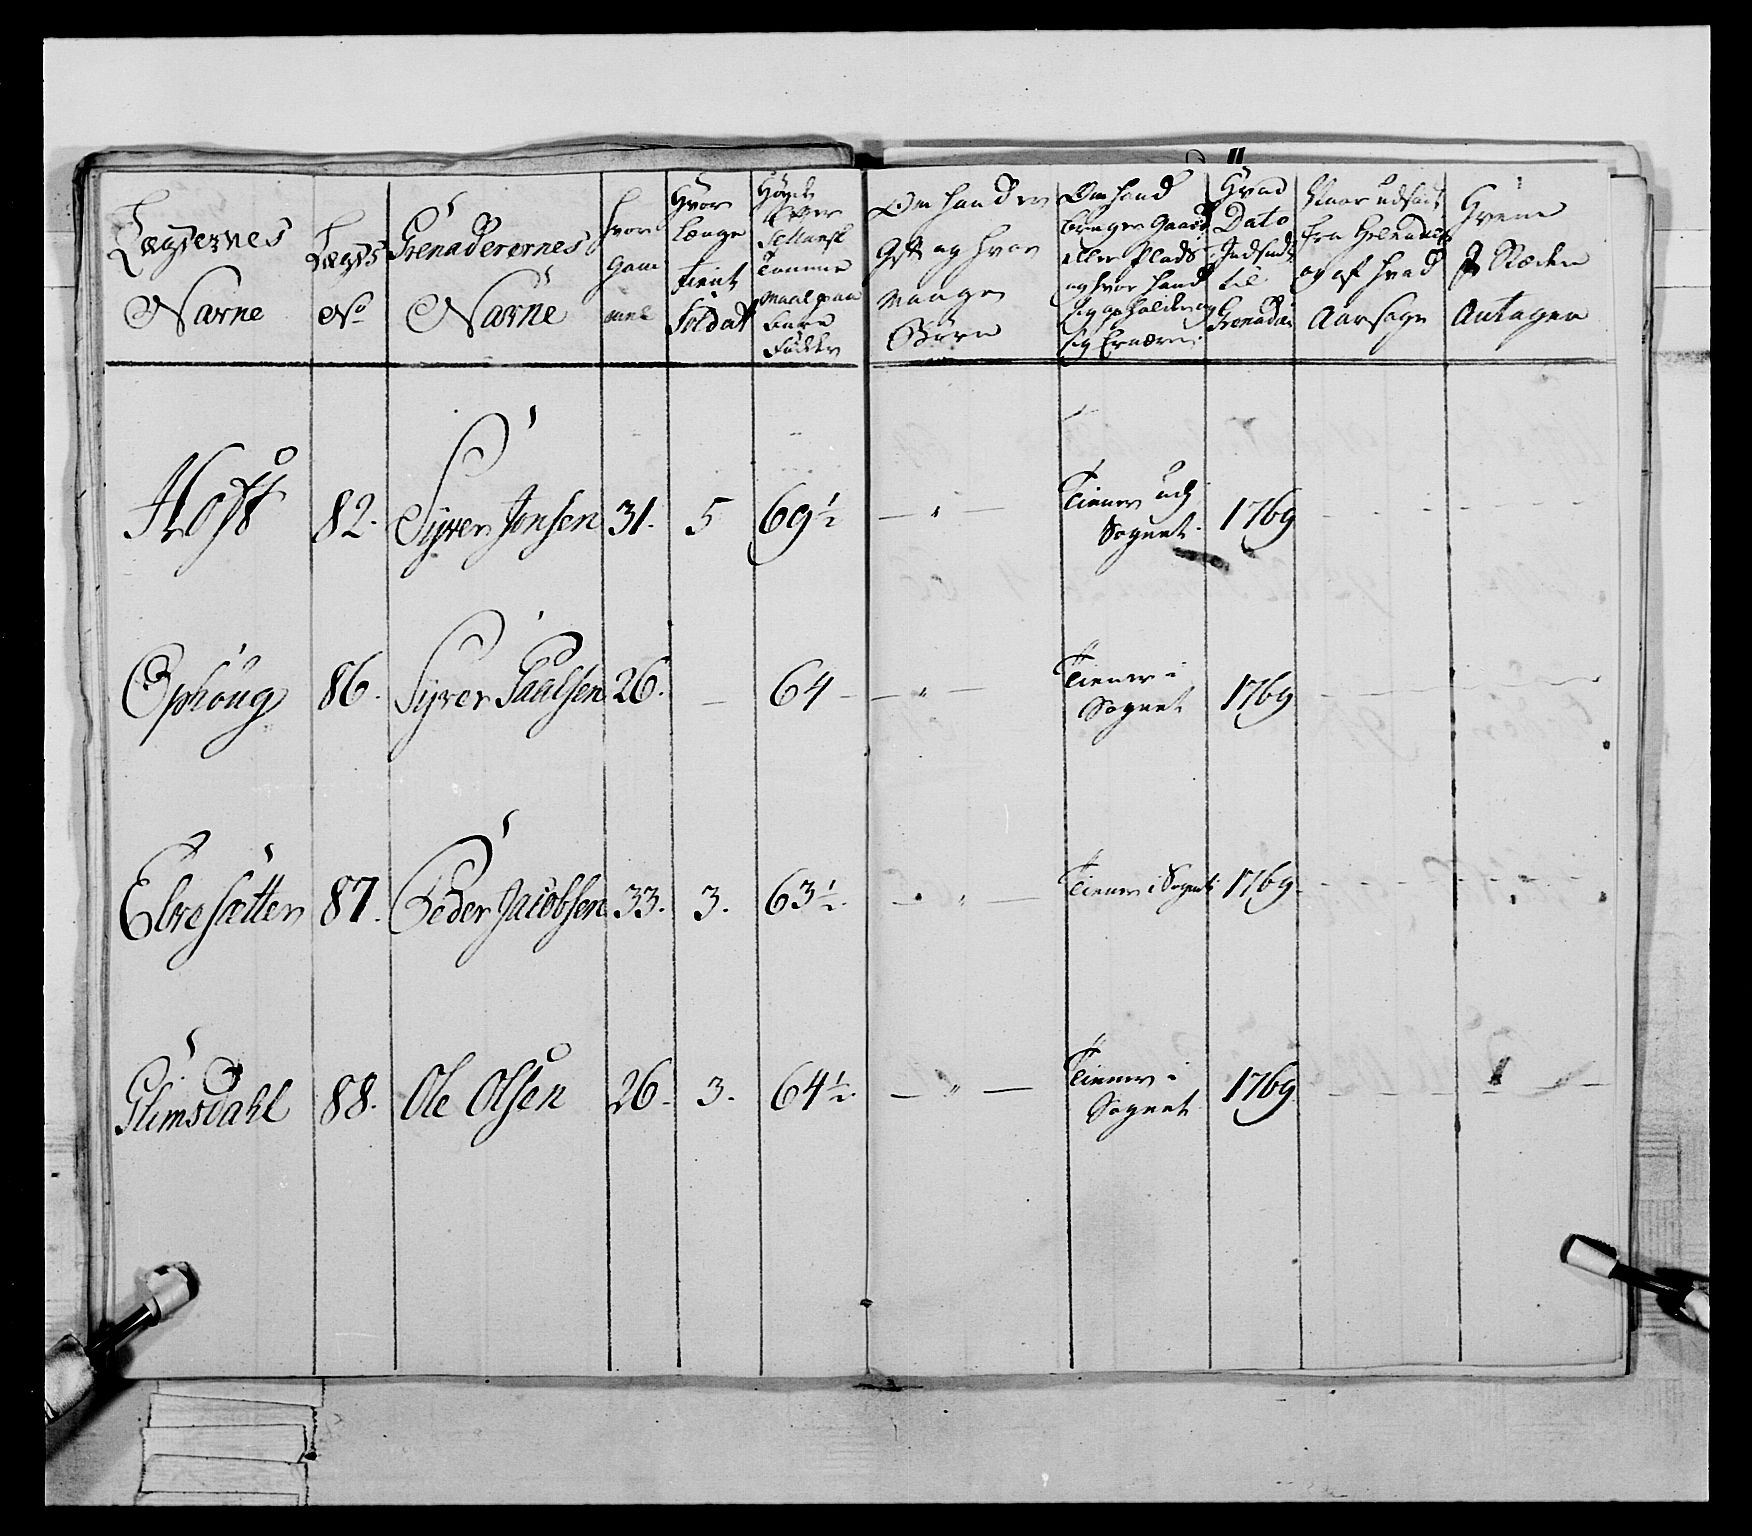 Lægdernes
Navne
Lægds
No
Grenaderernes
Navne
hvor
Gam
mel
Hvor
længe
tient
Soldat
Høyde
Efter
Tomme
Maal paa
bare
Fødder
Om hand er
Gift og hvor
mange
Børn
Om hand
bruger Gaard
eller Plads
og hvor hand
sig opholder og
sig Ernærer
Hvad
Dato
Indsadt
til
Grenadeer
Naar udsadt
og af hvad
Aarsage
Hvem
I Stæden
Antagen
Hoft 82. Syver Jonsen 31. 5 69½ — " — Tiener udj
Sognet. 1769
Ophoug 86. Syver Paalsen 26. — 64 — — " — Tiener i
Sognet 1769
Ebresætter 87. Peder Jacobsen 33. 3. 63½. — " — Tiener i Sognet 1769.
Glimsdahl 88. Ole Olsen 26. 3. 64½. — " — Tiener i
Sognet 1769